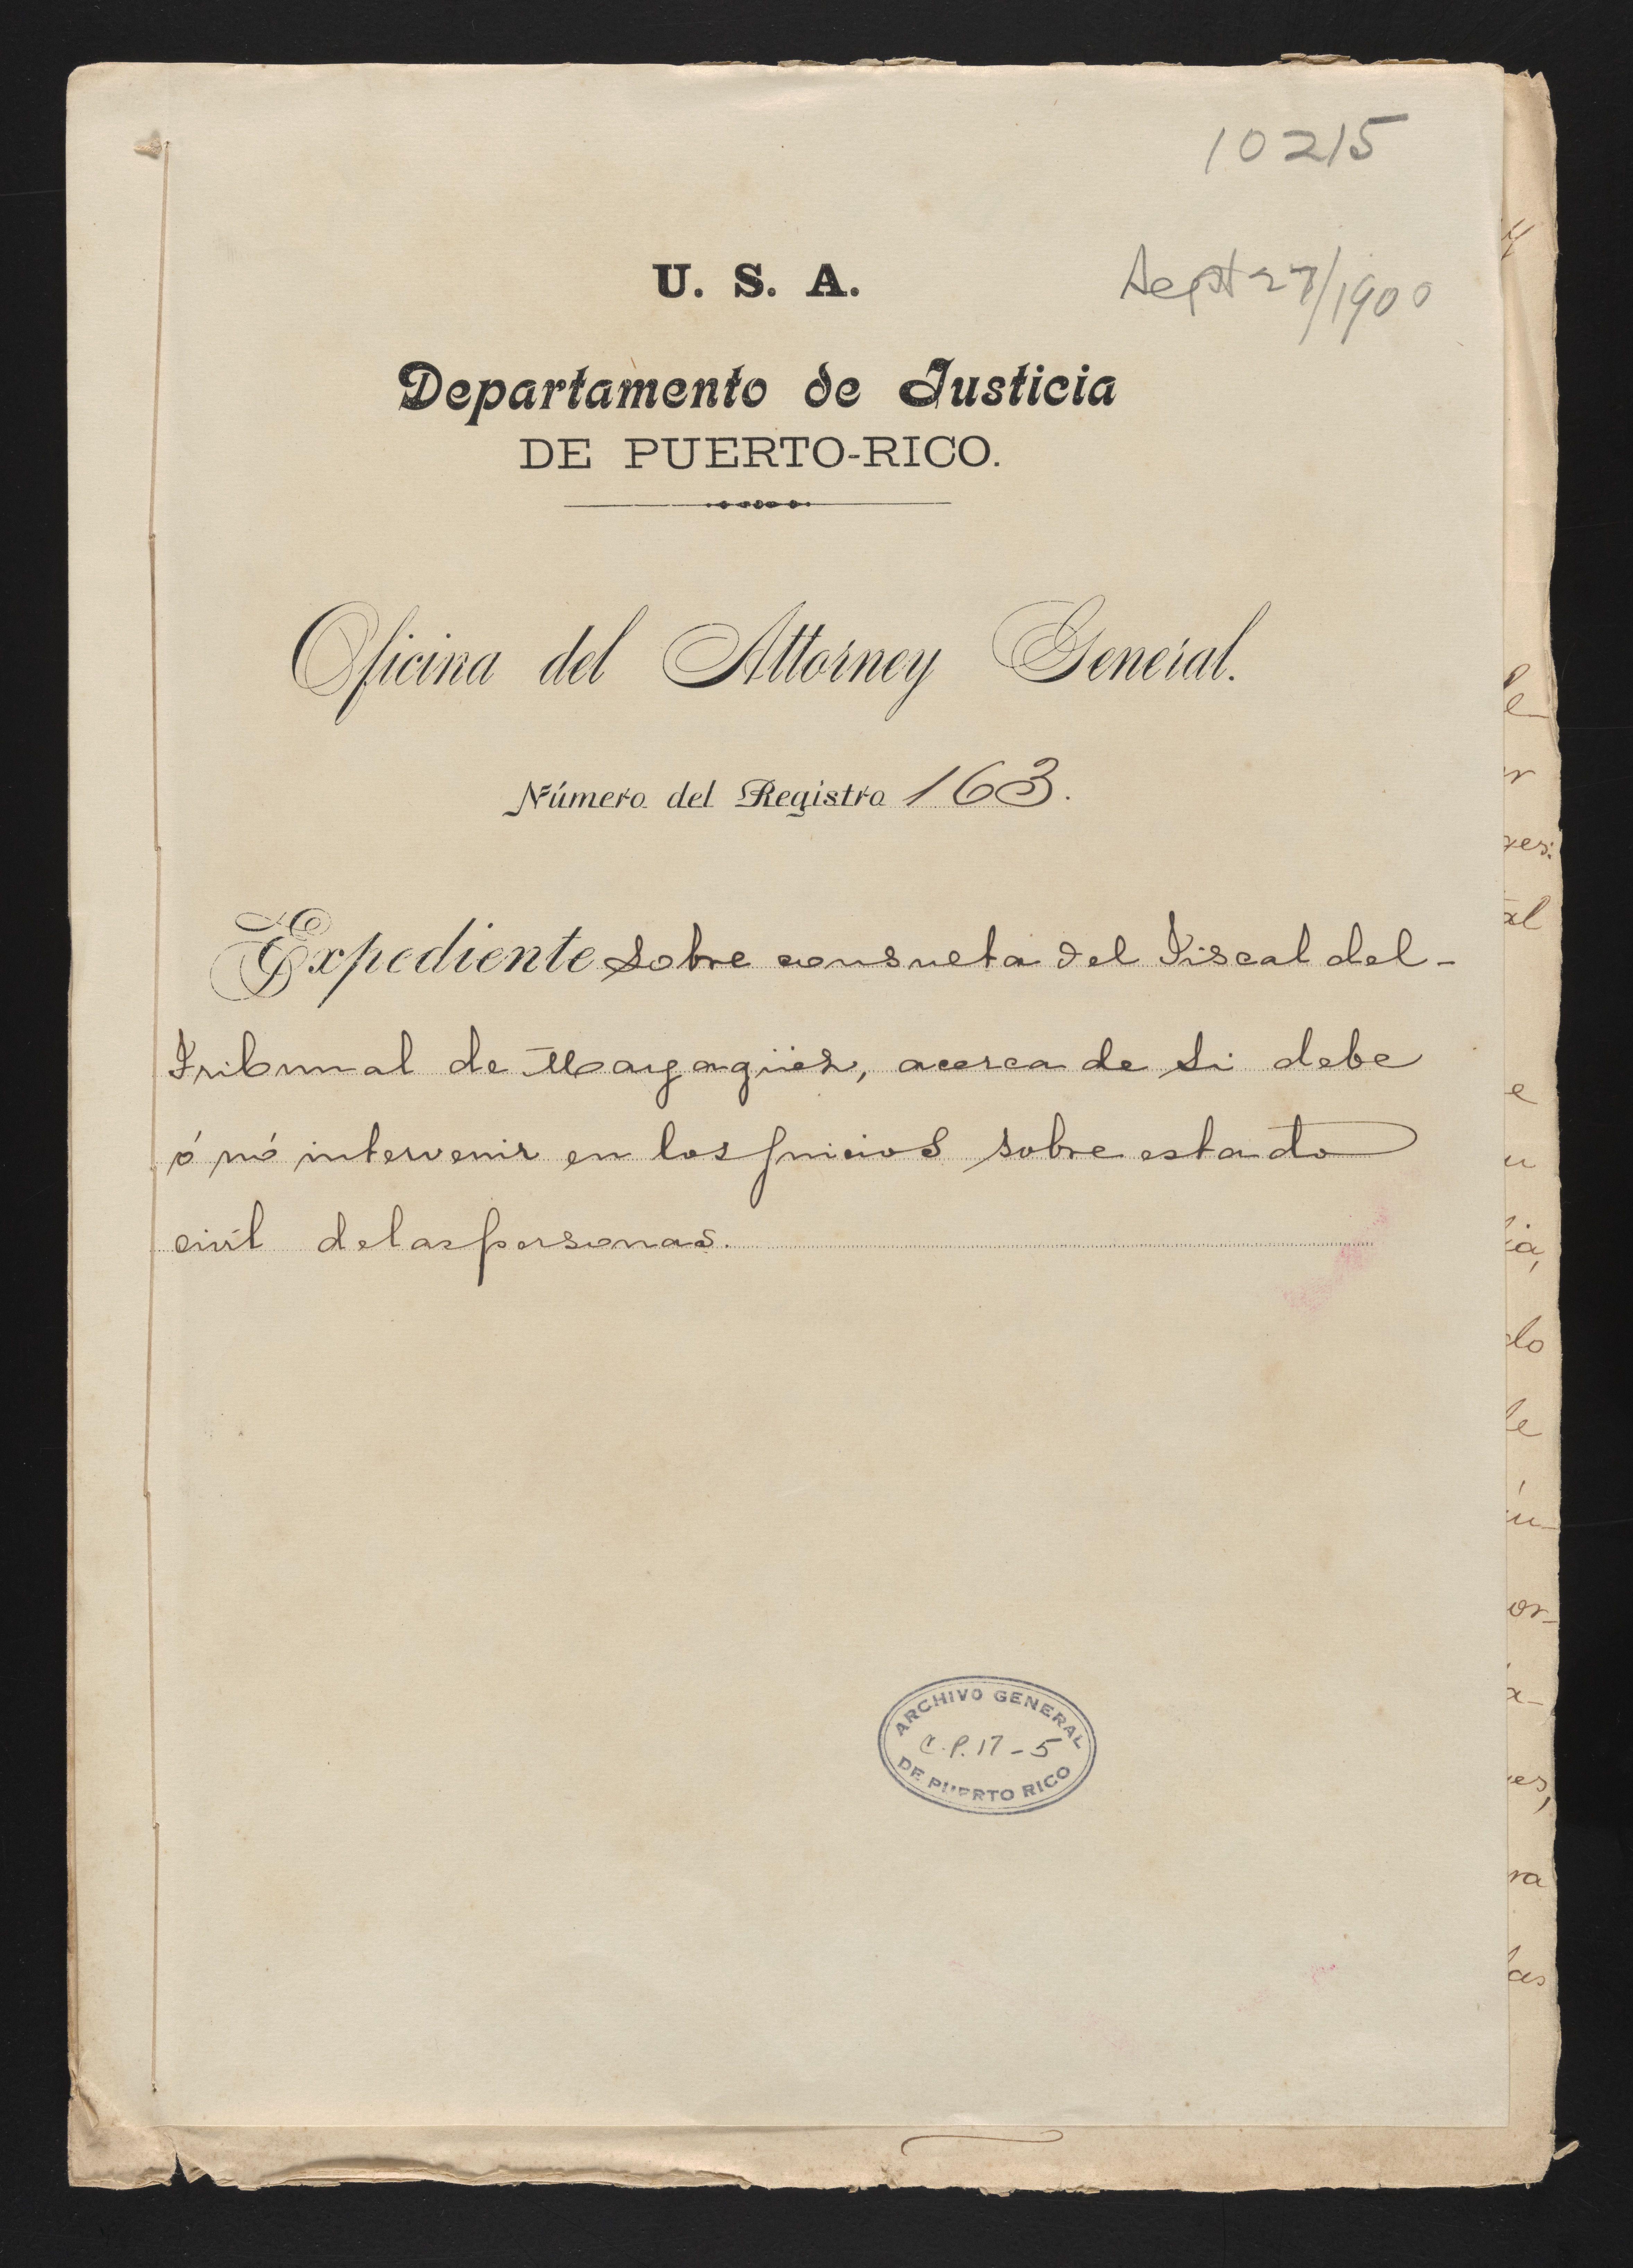 10215
Sept 27/1900
U. S. A.
Departamento de Justicia
DE PUERTO-RICO.
Oficina del Attorney General.
Número del Registro 163.
Expediente sobre consulta del Fiscal del-
Tribunal de Mayagüez, acerca de si debe
ó nó intervenir en los juicios sobre estado
civil de las personas.
ARCHIVO GENERAL
C.P. 17-5
DE PUERTO RICO